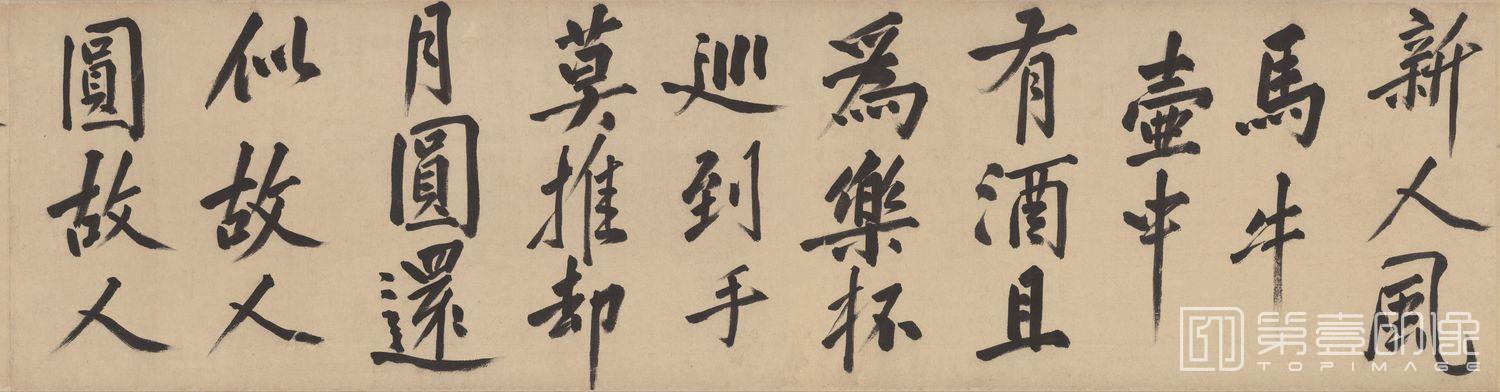 新人風
馬牛
壷中
有酒且
為樂杯
巡到手
莫推却
月圓還
似故人
圓故人
第壹印像
TOPIMAGE